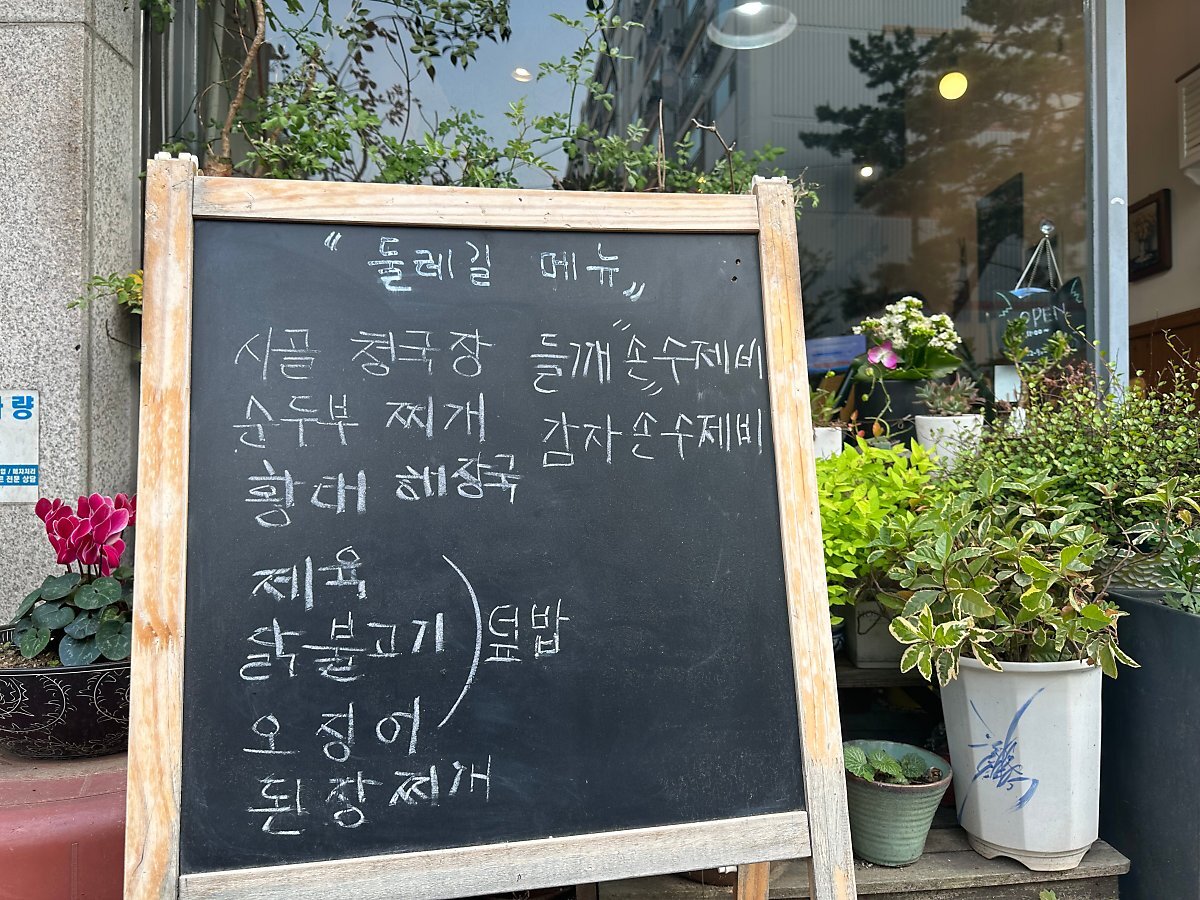 "둘레길 메뉴"
시골 청국장
순두부 찌개
황태 해장국
들깨 "손"수제비
감자손수제비
제육
닭불고기
오징어
덮밥
된장찌개
OPEN